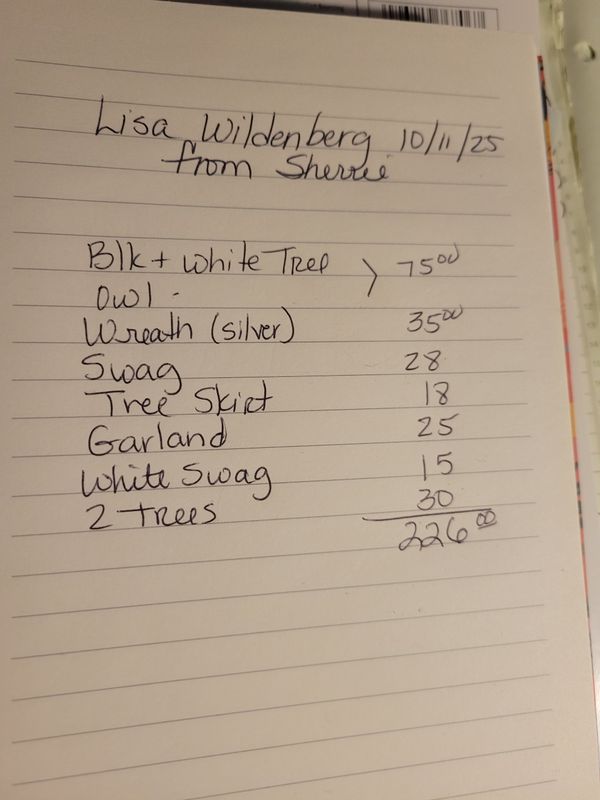 Lisa Wildenberg 10/11/25
from Sherrie
Blk + white Tree > 75 00
Owl -
Wreath (silver) 35 00
Swag 28
Tree Skirt 18
Garland 25
White Swag 15
2 Trees 30
226 00